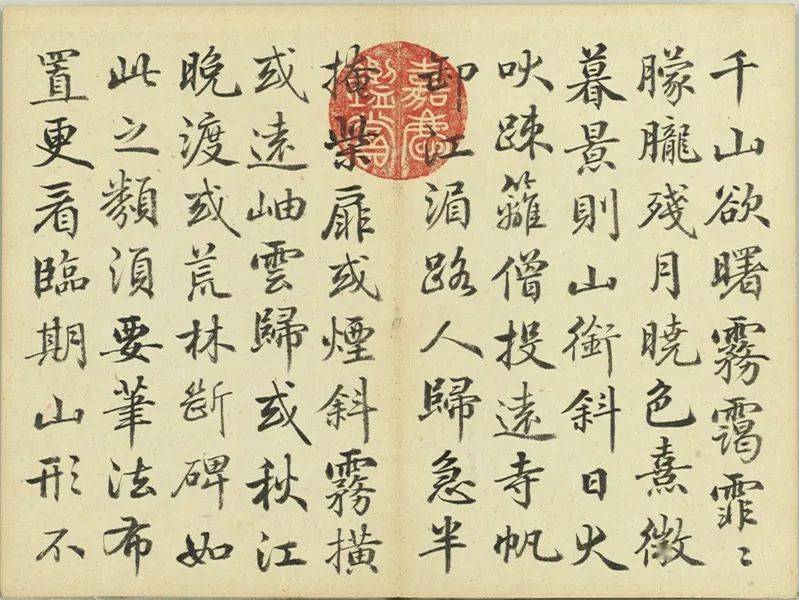 千山欲曙霧靄霏〻
朦朧殘月曉色熹微
暮景則山銜斜日犬
吠疎籬僧投遠寺帆
卸江湄路人歸急半
掩柴扉或煙斜霧橫
或遠岫雲歸或秋江
晚渡或荒林斷碑如
此之類須要筆法布
置更看臨期山形不
嘉慶鑑賞